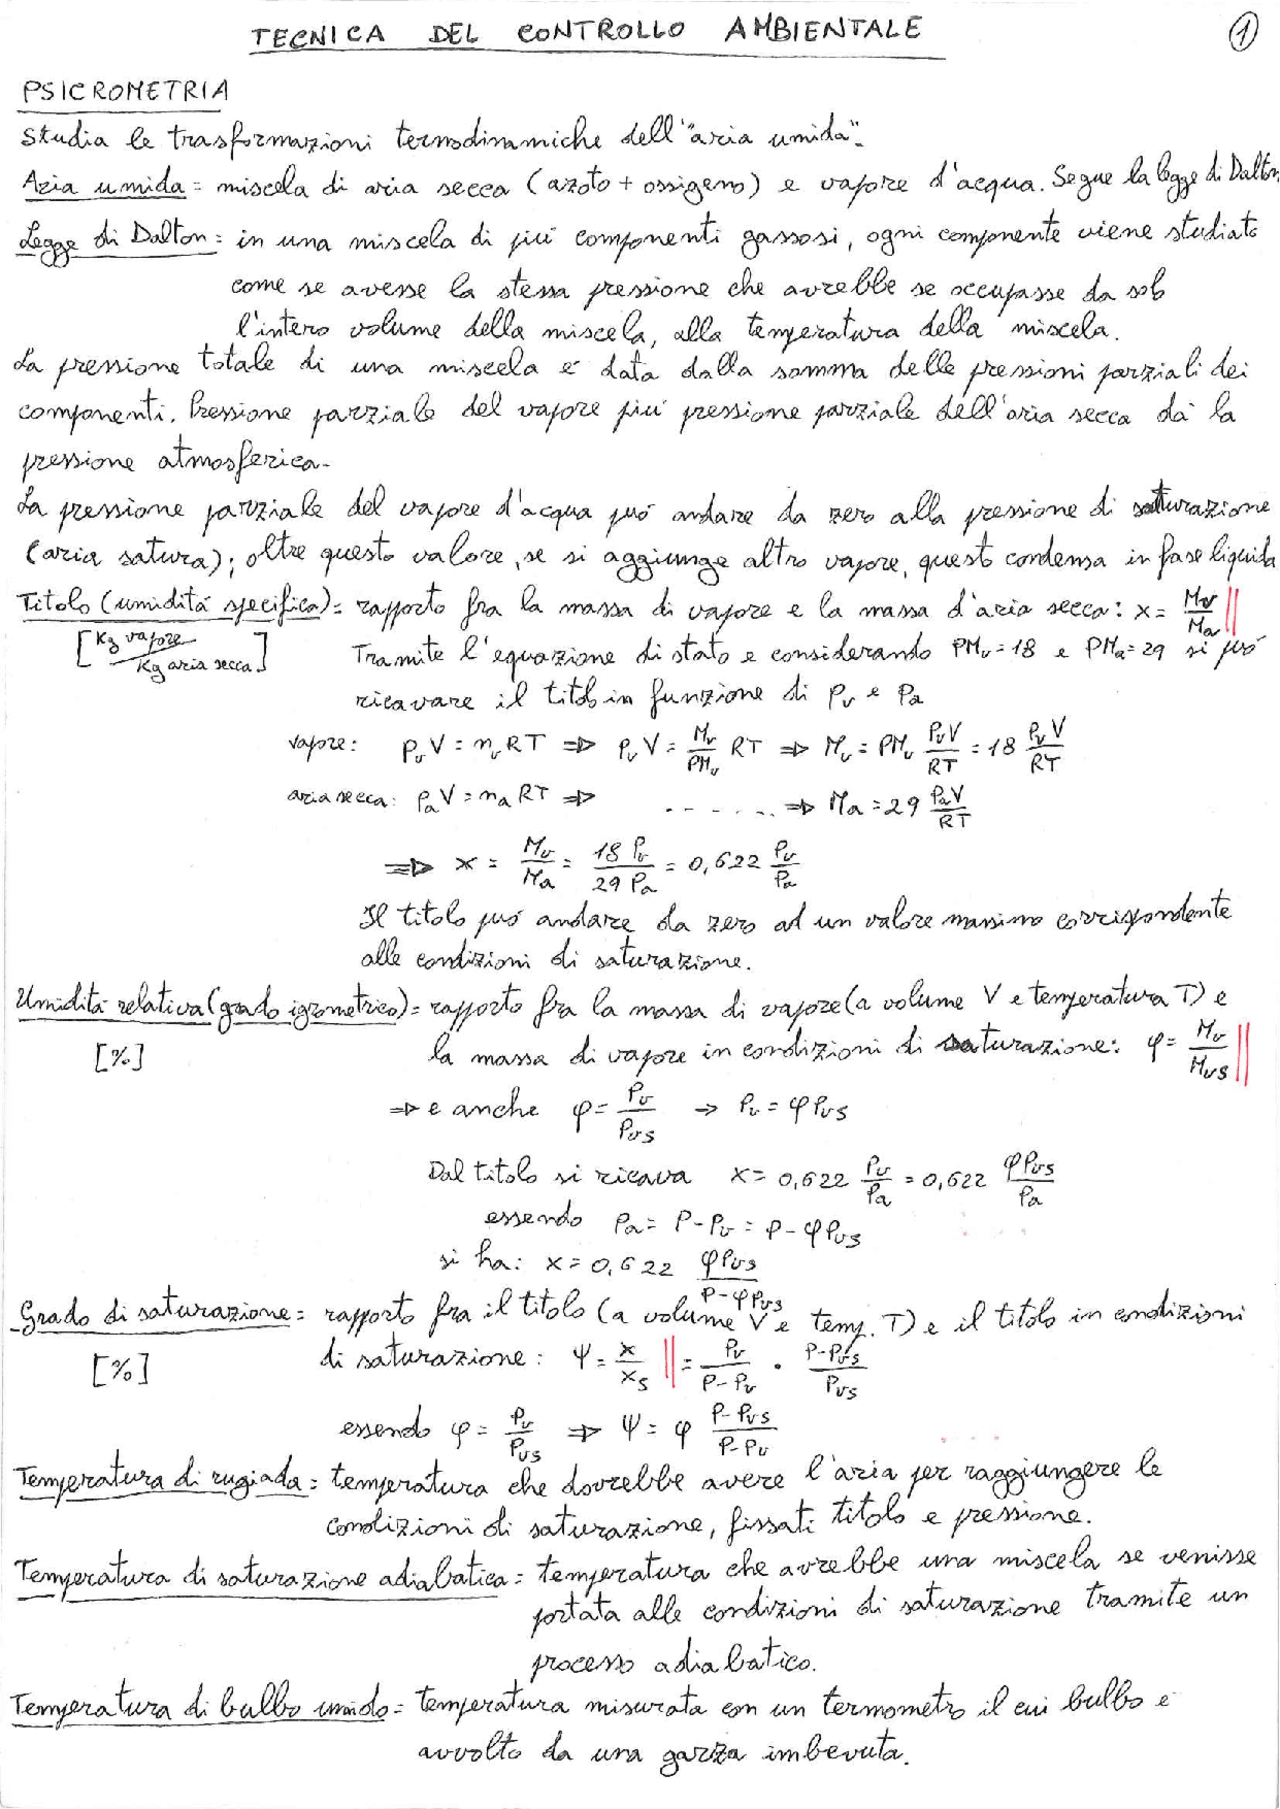 TECNICA DEL CONTROLLO AMBIENTALE
1
PSICROMETRIA
Studia le trasformazioni termodinamiche dell'"aria umida".
Aria umida = miscela di aria secca (azoto + ossigeno) e vapore d'acqua. Segue la legge di Dalton
Legge di Dalton = in una miscela di piú componenti gassosi, ogni componente viene studiato
come se avesse la stessa pressione che avrebbe se occupasse da solo
l'intero volume della miscela, alla temperatura della miscela.
La pressione totale di una miscela é data dalla somma delle pressioni parziali dei
componenti. Pressione parziale del vapore piú pressione parziale dell'aria secca dá la
pressione atmosferica.
La pressione parziale del vapore d'acqua puó andare da zero alla pressione di saturazione
(aria satura); oltre questo valore, se si aggiunge altro vapore, questo condensa in fase liquida
Titolo (umiditá specifica) = rapporto fra la massa di vapore e la massa d'aria secca: x = Mv/Ma
[Kg vapore / Kg aria secca]
Tramite l'equazione di stato e considerando PMv = 18 e PMa = 29 si puó
ricavare il titolo in funzione di Pv e Pa
vapore: PvV = nvRT ⇒ PvV = Mv/PMv RT ⇒ Mv = PMv PvV/RT = 18 PvV/RT
aria secca: PaV = naRT ⇒ ....... ⇒ Ma = 29 PaV/RT
⇒ x = Mv/Ma = 18 Pv/29 Pa = 0,622 Pv/Pa
Il titolo puó andare da zero ad un valore massimo corrispondente
alle condizioni di saturazione.
Umiditá relativa (grado igrometrico) = rapporto fra la massa di vapore (a volume V e temperatura T) e
[%]
la massa di vapore in condizioni di saturazione: φ = Mv/Mvs
⇒ e anche φ = Pv/Pvs → Pv = φPvs
Dal titolo si ricava x = 0,622 Pv/Pa = 0,622 φPvs/Pa
essendo Pa = P - Pv = P - φPvs
si ha: x = 0,622 φPvs/P-φPvs
Grado di saturazione = rapporto fra il titolo (a volume V e temp. T) e il titolo in condizioni
[%]
di saturazione: ψ = x/xs = Pv/P-Pv · P-Pvs/Pvs
essendo φ = Pv/Pvs ⇒ ψ = φ P-Pvs/P-Pv
Temperatura di rugiada = temperatura che dovrebbe avere l'aria per raggiungere le
condizioni di saturazione, fissati titolo e pressione.
Temperatura di saturazione adiabatica = temperatura che avrebbe una miscela se venisse
portata alle condizioni di saturazione tramite un
processo adiabatico.
Temperatura di bulbo umido = temperatura misurata con un termometro il cui bulbo é
avvolto da una garza imbevuta.